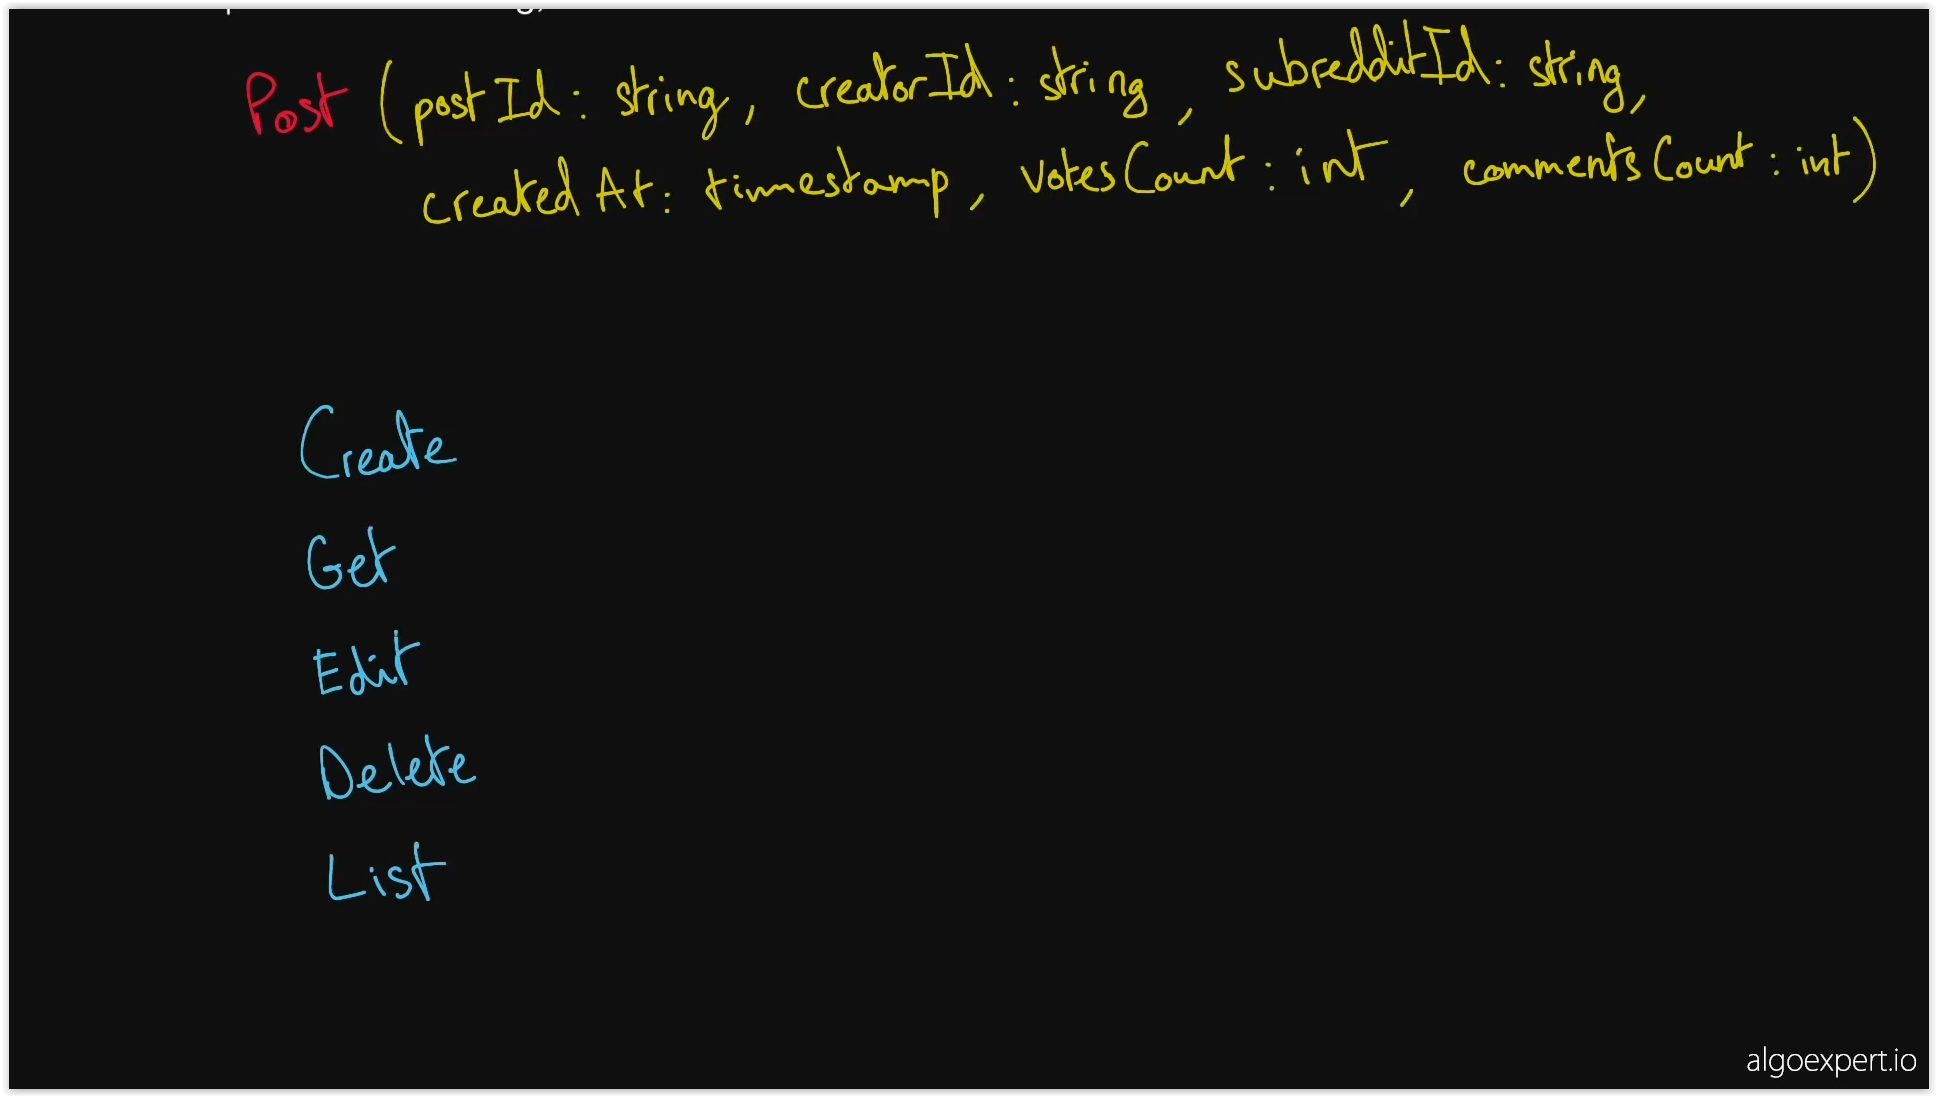 Post (postId: string, creatorId: string, subredditId: string,
createdAt: timestamp, votesCount: int, commentsCount: int)
Create
Get
Edit
Delete
List
algoexpert.io